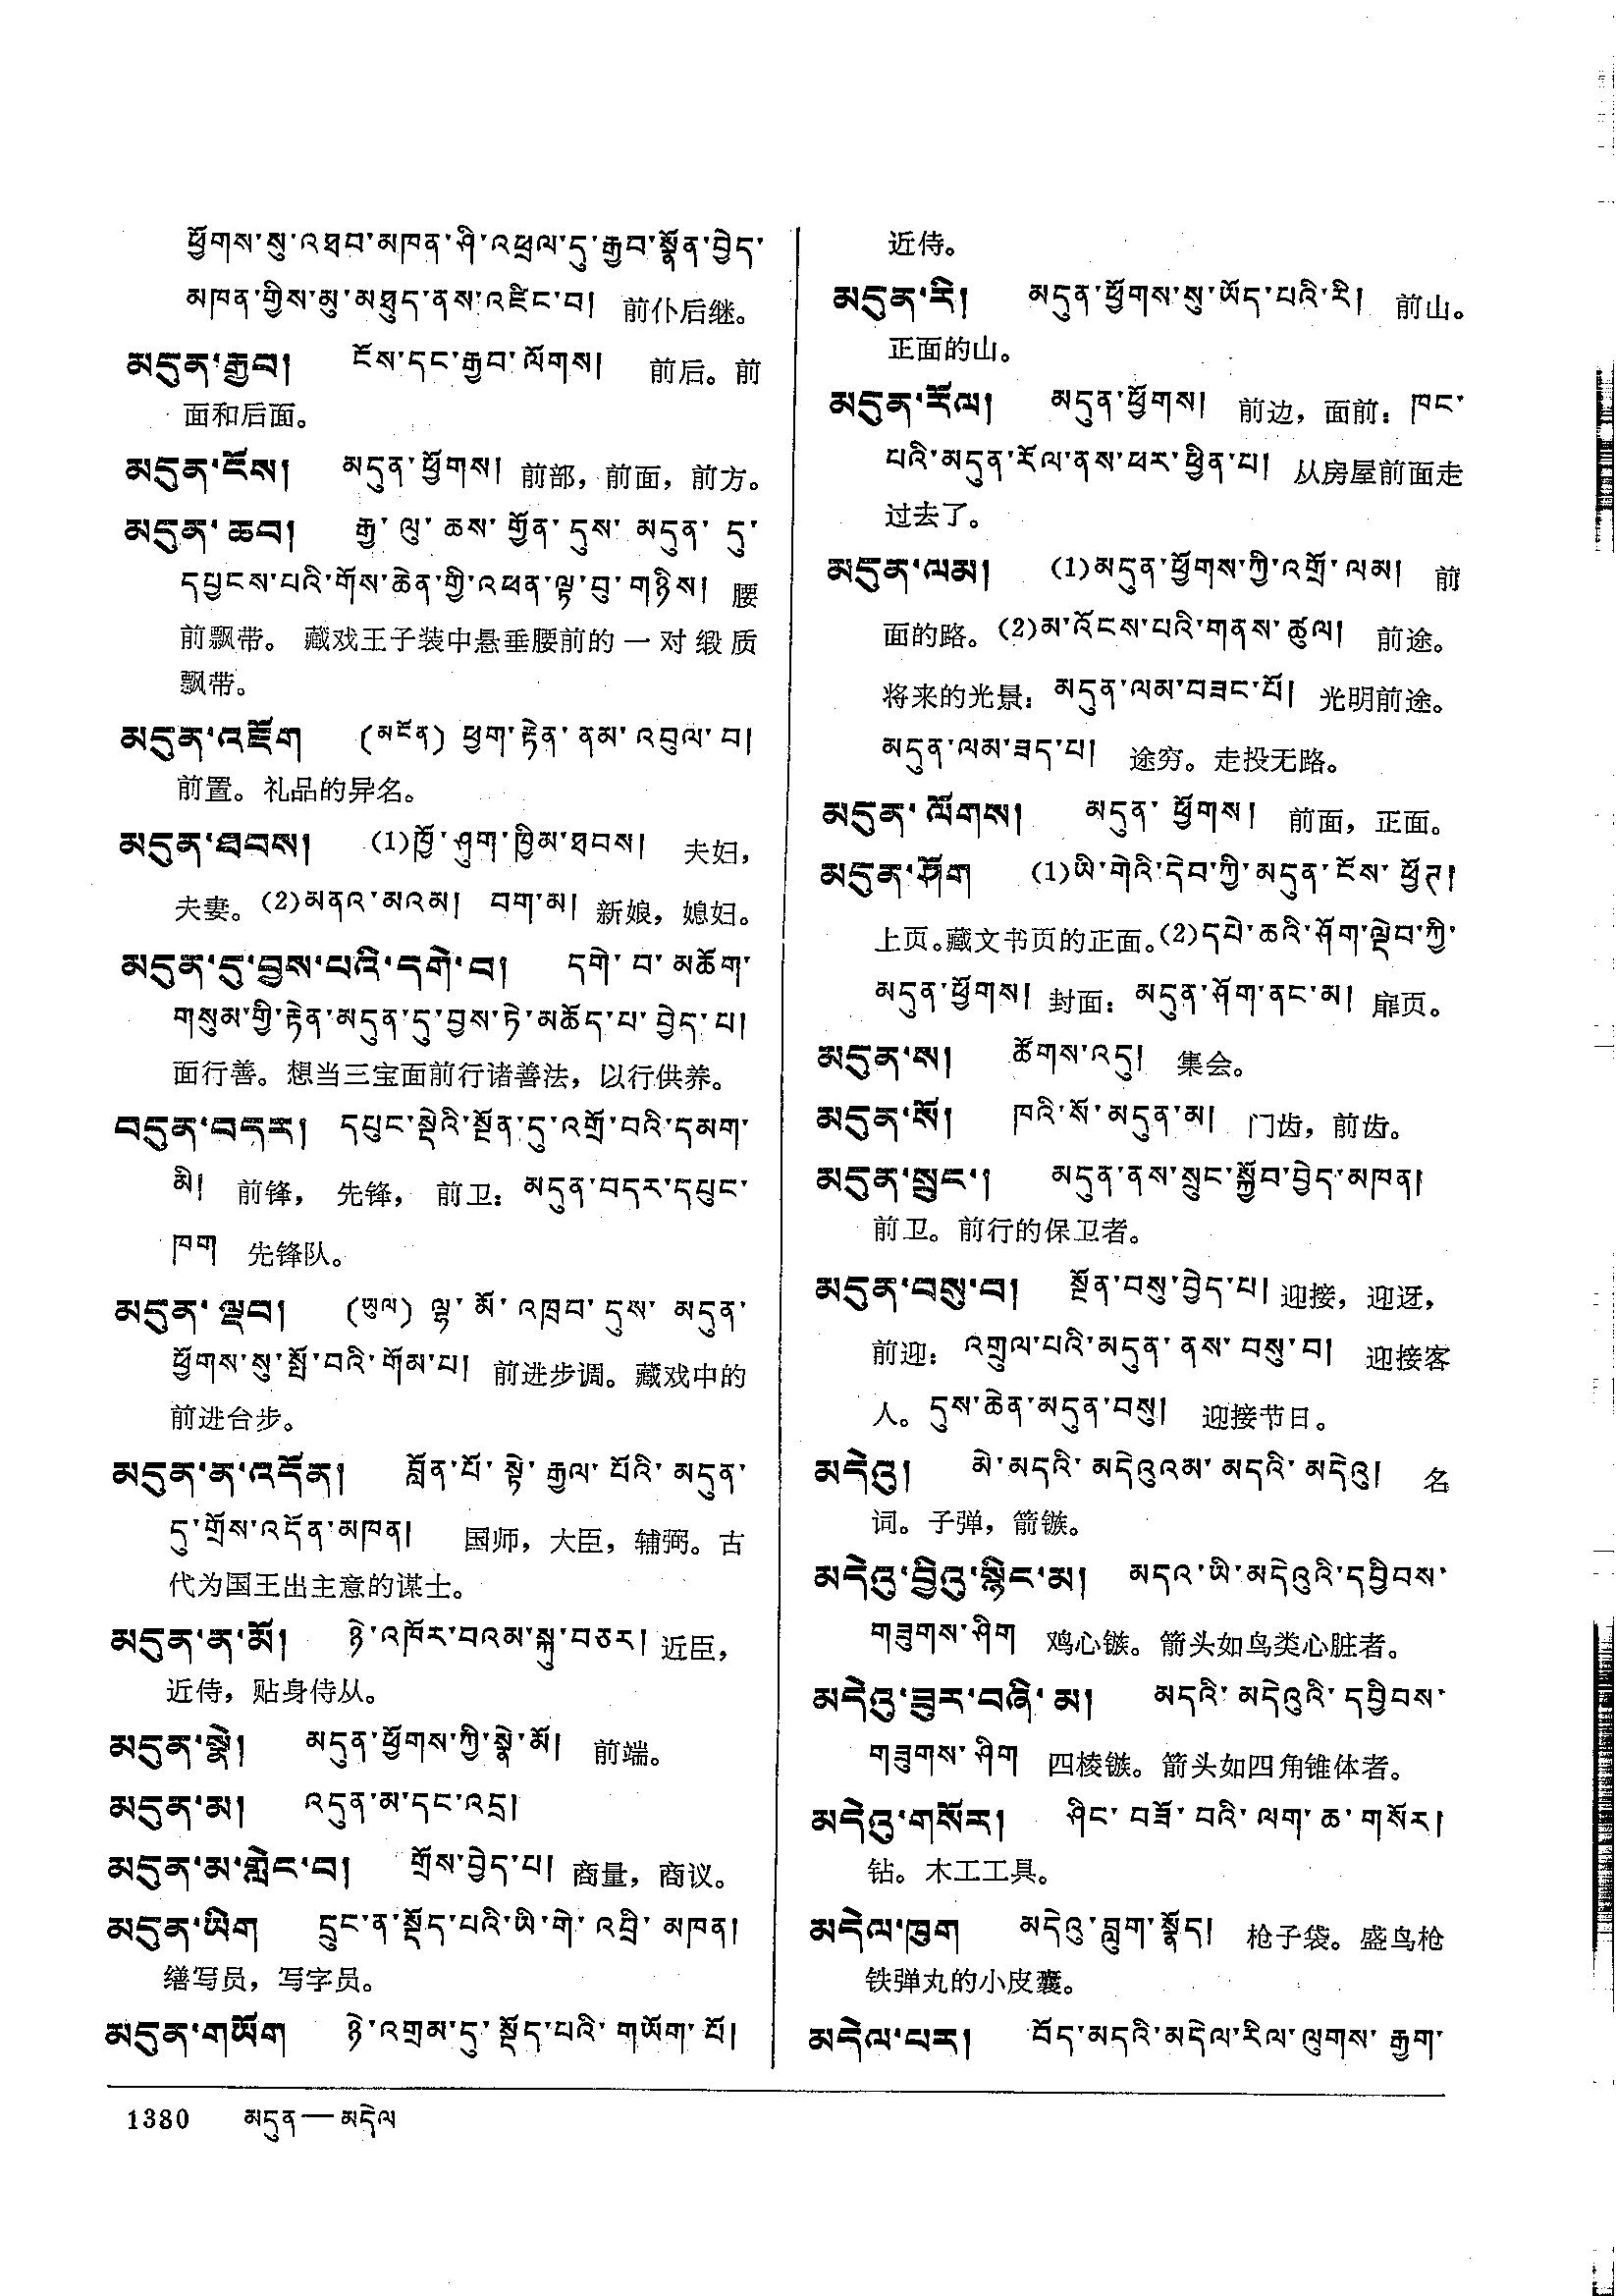 ཕྱོགས་སུ་འཐབ་མཁན་ཤི་འཕྲལ་དུ་རྒྱབ་སྣོན་བྱེད་
མཁན་གྱིས་མུ་མཐུད་ནས་འཛིང་བ། 前仆后继。
མདུན་རྒྱབ། ངོས་དང་རྒྱབ་ལོགས། 前后。前
面和后面。
མདུན་ངོས། མདུན་ཕྱོགས། 前部，前面，前方。
མདུན་ཆབ། རྒྱ་ལུ་ཆས་གྱོན་དུས་མདུན་དུ་
དཔྱངས་པའི་གོས་ཆེན་གྱི་འཕན་ལྟ་བུ་གཉིས། 腰
前飘带。藏戏王子装中悬垂腰前的一对缎质
飘带。
མདུན་འཇོག (མངོན) ཕྱག་རྟེན་ནམ་འབུལ་བ།
前置。礼品的异名。
མདུན་ཐབས། (1)ཁྱོ་ཤུག་ཁྱིམ་ཐབས། 夫妇，
夫妻。(2)མནའ་མའམ། བག་མ། 新娘，媳妇。
མདུན་དུ་བྱས་པའི་དགེ་བ། དགེ་བ་མཆོག་
གསུམ་གྱི་རྟེན་མདུན་དུ་བྱས་ཏེ་མཆོད་པ་བྱེད་པ།
面行善。想当三宝面前行诸善法，以行供养。
བདུན་བདར། དཔུང་སྡེའི་སྔོན་དུ་འགྲོ་བའི་དམག་
མི། 前锋，先锋，前卫：མདུན་བདར་དཔུང་
ཁག 先锋队。
མདུན་ལྡབ། (ཡུལ) ལྷ་མོ་འཁྲབ་དུས་མདུན་
ཕྱོགས་སུ་སྤོ་བའི་གོམ་པ། 前进步调。藏戏中的
前进台步。
མདུན་ན་འདོན། བློན་པོ་སྟེ་རྒྱལ་པོའི་མདུན་
དུ་གྲོས་འདོན་མཁན། 国师，大臣，辅弼。古
代为国王出主意的谋士。
མདུན་ན་མོ། ཉེ་འཁོར་བའམ་སྐུ་བཅར། 近臣，
近侍，贴身侍从。
མདུན་སྣེ། མདུན་ཕྱོགས་ཀྱི་སྣེ་མོ། 前端。
མདུན་མ། འདུན་མ་དང་འདྲ།
མདུན་མ་གླེང་བ། གྲོས་བྱེད་པ། 商量，商议。
མདུན་ཡིག དྲུང་ན་སྡོད་པའི་ཡི་གེ་འབྲི་མཁན།
缮写员，写字员。
མདུན་གཡོག ཉེ་འགྲམ་དུ་སྡོད་པའི་གཡོག་པོ།
近侍。
མདུན་རི། མདུན་ཕྱོགས་སུ་ཡོད་པའི་རི། 前山。
正面的山。
མདུན་རོལ། མདུན་ཕྱོགས། 前边，面前：ཁང་
པའི་མདུན་རོལ་ནས་ཕར་ཕྱིན་པ། 从房屋前面走
过去了。
མདུན་ལམ། (1)མདུན་ཕྱོགས་ཀྱི་འགྲོ་ལམ། 前
面的路。(2)མ་འོངས་པའི་གནས་ཚུལ། 前途。
将来的光景：མདུན་ལམ་བཟང་པོ། 光明前途。
མདུན་ལམ་ཟད་པ། 途穷。走投无路。
མདུན་ལོགས། མདུན་ཕྱོགས། 前面，正面。
མདུན་ཤོག (1)ཡི་གེའི་དེབ་ཀྱི་མདུན་ངོས་ཕྱོད།
上页。藏文书页的正面。(2)དཔེ་ཆའི་ཤོག་ལྡེབ་ཀྱི་
མདུན་ཕྱོགས། 封面：མདུན་ཤོག་ནང་མ། 扉页。
མདུན་ས། ཚོགས་འདུ། 集会。
མདུན་སོ། ཁའི་སོ་མདུན་མ། 门齿，前齿。
མདུན་སྲུང་། མདུན་ནས་སྲུང་སྐྱོབ་བྱེད་མཁན།
前卫。前行的保卫者。
མདུན་བསུ་བ། སྔོན་བསུ་བྱེད་པ། 迎接，迎迓，
前迎：འགྲུལ་པའི་མདུན་ནས་བསུ་བ། 迎接客
人。དུས་ཆེན་མདུན་བསུ། 迎接节日。
མདེའུ། མེ་མདའི་མདེའུའམ་མདའི་མདེའུ། 名
词。子弹，箭镞。
མདེའུ་བྱིའུ་སྙིང་མ། མདའ་ཡི་མདེའུའི་དབྱིབས་
གཟུགས་ཤིག 鸡心镞。箭头如鸟类心脏者。
མདེའུ་ཟུར་བཞི་མ། མདའི་མདེའུའི་དབྱིབས་
གཟུགས་ཤིག 四棱镞。箭头如四角锥体者。
མདེའུ་གསོར། ཤིང་བཟོ་བའི་ལག་ཆ་གསོར།
钻。木工工具。
མདེལ་ཁུག མདེའུ་བླུག་སྣོད། 枪子袋。盛鸟枪
铁弹丸的小皮囊。
མདེལ་པར། བོད་མདའི་མདེལ་རིལ་ལུགས་རྒྱག་
1380 མདུན—མདེལ